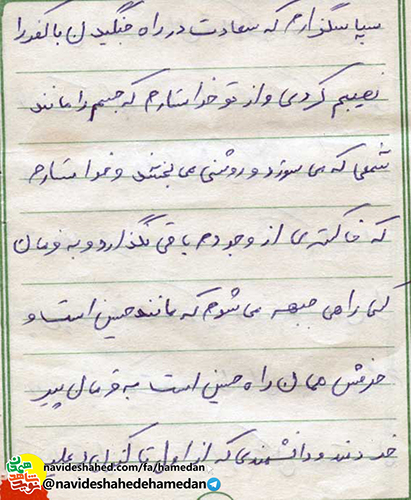 سپاسگزارم که سعادت در راه جنگیدن با کفر را
نصیبم کردی و از تو خواستارم که جسم را مانند
شمعی که می سوزد و روشنی می بخشد و خواستارم
که خاکستری از وجودم باقی نگذارد و به فرمان
کسی راهی جبهه می شوم که مانند حسین است و
حرفش همان راه حسین است به فرمان پیر
خردمند و دانشمندی که از اول تا کنون علیه
navideshahed.com/fa/hamedan
@navideshahedehamedan